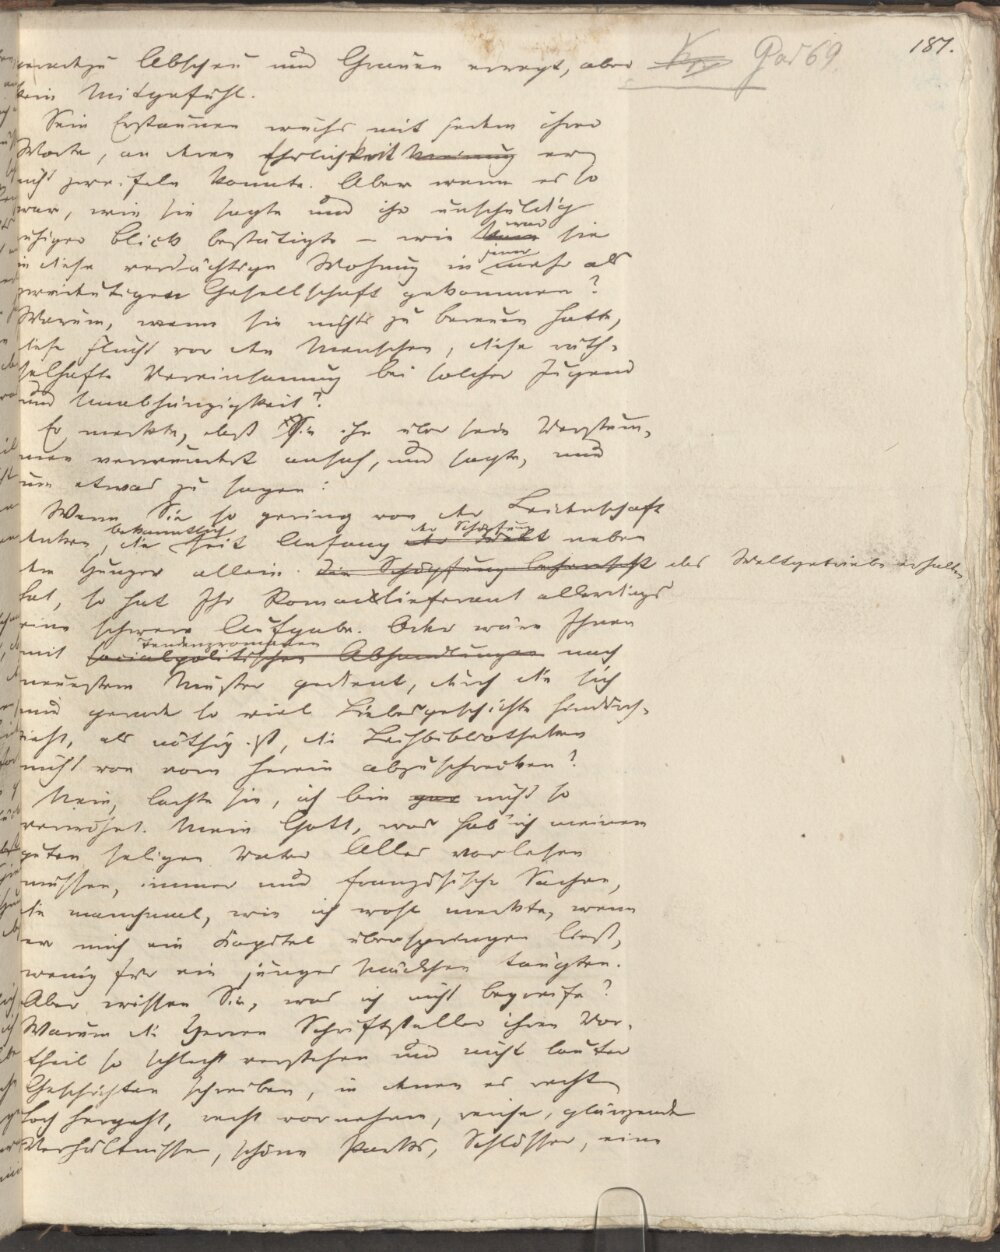 187.
geradezu Abscheu und Grauen erregt, aber
kein Mitgefühl.
Sein Erstaunen wuchs mit jedem ihrer
Worte, an deren Ehrlichkeit Meinung er
nicht zweifeln konnte. Aber wenn es so
war, wie sie sagte und ihr unschuldig
ruhiger Blick bestätigte – wie war sie
in diese verdächtige Wohnung in einer mehr als
zweideutigen Gesellschaft gekommen?
Warum, wenn sie nichts zu bereuen hatte,
diese Flucht vor den Menschen, diese räth-
selhafte Vereinsamung bei solcher Jugend
und Unabhängigkeit?
Er merkte, daß sie ihn über sein Verstum-
men verwundert ansah, und sagte, nur
um etwas zu sagen:
Wenn Sie so gering von der Leidenschaft
denken, die bekanntlich seit Anfang der Welt der Schöpfung neben
dem Hunger allein die Schöpfung beherrscht das Weltgetriebe erhalten
hat, so hat Ihr Romanlieferant allerdings
eine schwere Aufgabe. Oder wäre Ihnen
mit socialpolitischen Abhandlungen Tendenzromanen nach
neuestem Muster gedient, durch die sich
nur gerade so viel Liebesgeschichte hindurch-
zieht, als nöthig ist, die Leihbibliotheken
nicht von vorn herein abzuschrecken?
Nein, lachte sie, ich bin gar nicht so
verwöhnt. Mein Gott, was hab' ich meinem
guten seligen Vater Alles vorlesen
müssen, immer nur französische Sachen,
die manchmal, wie ich wohl merkte, wenn
er mich ein Kapitel überspringen ließ,
wenig für ein junges Mädchen taugten.
Aber wissen Sie, was ich nicht begreife?
Warum die Herren Schriftsteller ihren Vor-
theil so schlecht verstehen und nicht lauter
Geschichten schreiben, in denen es recht
hoch hergeht, recht vornehme, reiche, glänzende
Verhältnisse, schöne Parks, Schlösser, eine